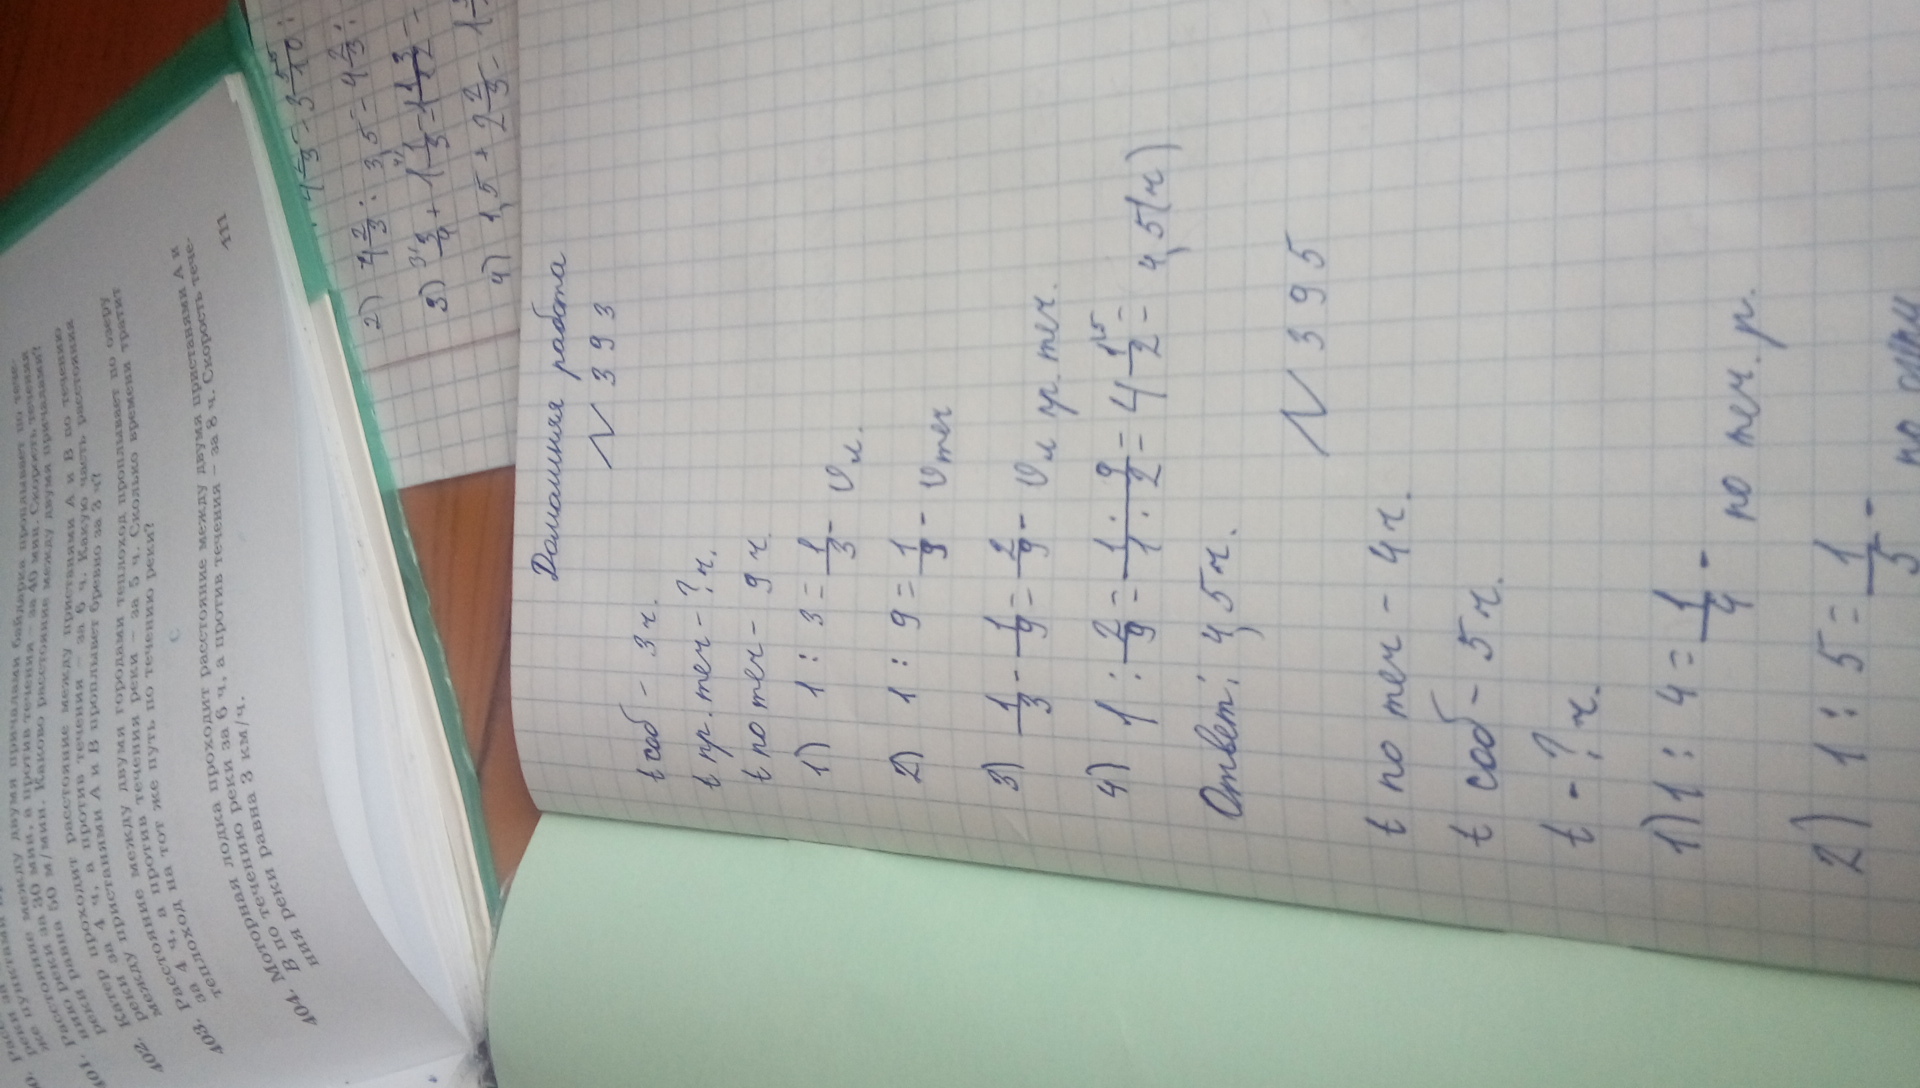 же пункта
расстояние между двумя причалами байдарка проплывает по тече-
нию реки за 30 мин, а против течения – за 40 мин. Скорость течения
реки равна 50 м/мин. Каково расстояние между двумя причалами?
401. Расстояние между пристанями А и В по течению
реки проходит за 4 ч, а против течения – за 6 ч. Какую часть расстояния
между пристанями А и В проплывет бревно за 3 ч?
402. Катер
403. Расстояние между двумя городами теплоход проплывает по озеру
за 4 ч, а против течения реки – за 5 ч. Сколько времени тратит
теплоход на тот же путь по течению реки?
404. Моторная лодка проходит расстояние между двумя пристанями А и
В по течению реки за 6 ч, а против течения – за 8 ч. Скорость тече-
ния реки равна 3 км/ч.
111
2) 4 2/3 : 3,5 =
3)
4) 1,5 + 2 2/3 -
Домашняя работа
N 393
t соб - 3 ч.
t пр. теч - ? ч.
t по теч - 9 ч.
1) 1 : 3 = 1/3 - v л.
2) 1 : 9 = 1/9 - v теч
3) 1/3 - 1/9 = 2/9 - v л пр. теч.
4) 1 : 2/9 = 1/1 · 9/2 = 4 1/2 = 4,5 (ч)
Ответ: 4,5 ч.
N 395
t по теч - 4 ч.
t соб - 5 ч.
t - ? ч.
1) 1 : 4 = 1/4 - по теч. р.
2) 1 : 5 = 1/5 - по